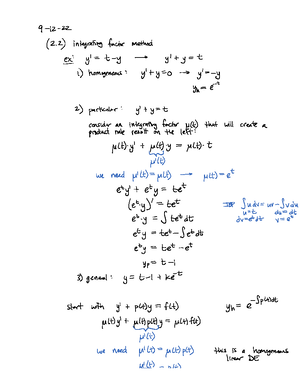 9-12-22
(2.2) integrating factor method
ex: y' = t-y → y' + y = t
1) homogeneous: y' + y = 0 → y' = -y
y_h = e^-t
2) particular: y' + y = t
consider an integrating factor μ(t) that will create a
product rule result on the left:
μ(t)·y' + μ(t)y = μ(t)·t
μ'(t)
we need μ'(t) = μ(t) → μ(t) = e^t
e^t y' + e^t y = te^t
(e^t y)' = te^t
e^t·y = ∫ te^t dt
∫u dv = uv - ∫v du
u=t du=dt
dv=e^t dt v=e^t
e^t y = te^t - ∫e^t dt
e^t y = te^t - e^t
y_p = t-1
3) general: y = t-1 + ke^-t
start with y' + p(t)y = f(t)
y_h = e^-∫p(t)dt
μ(t)y' + μ(t)p(t)y = μ(t)f(t)
μ'(t)
we need μ'(t) = μ(t)p(t)
this is a homogeneous
linear DE